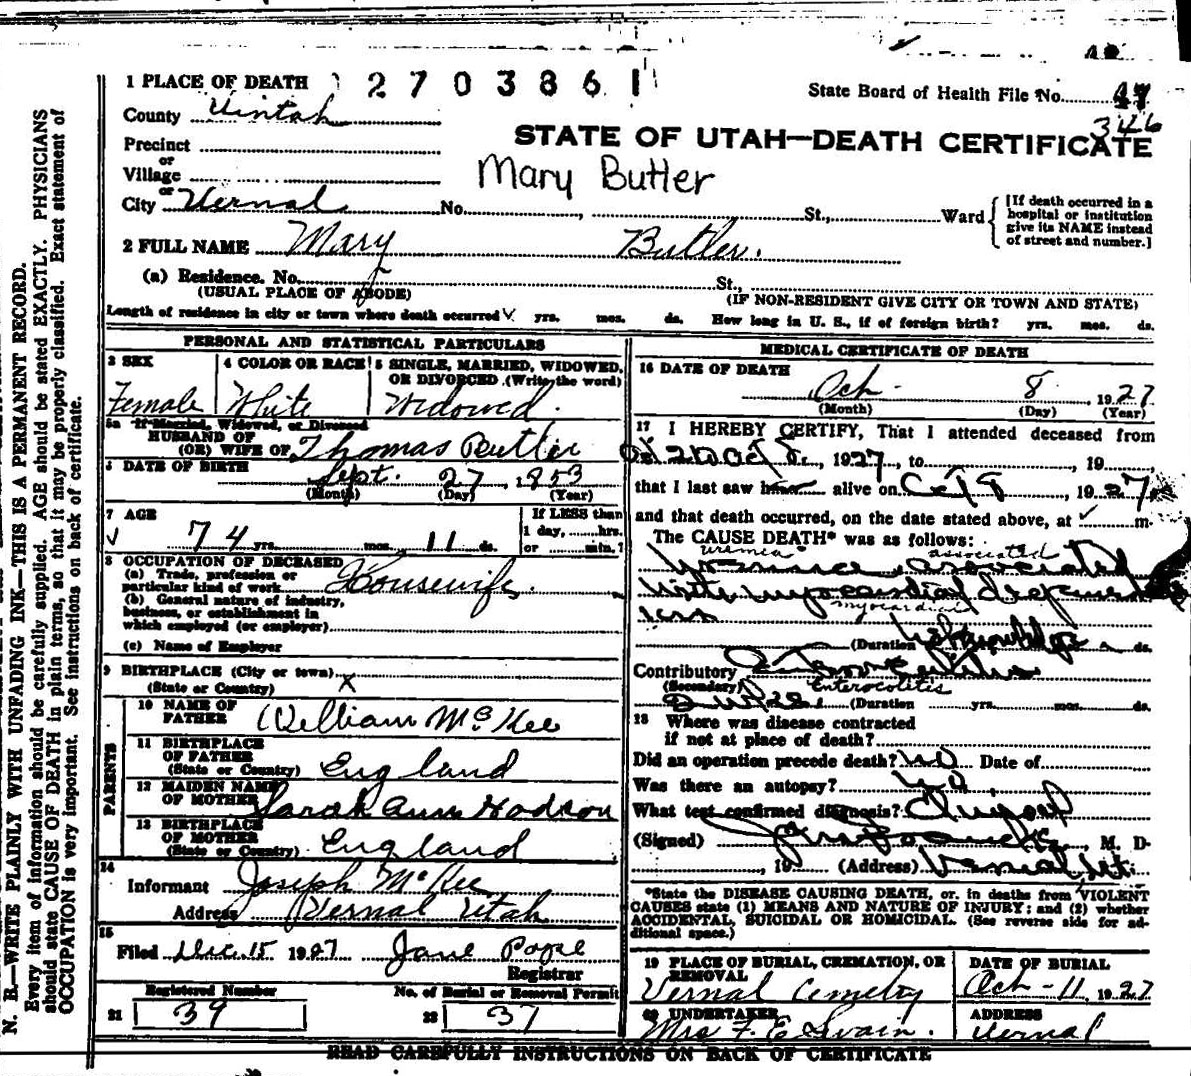 1 PLACE OF DEATH 2703861
State Board of Health File No. 47
346
County Uintah
STATE OF UTAH—DEATH CERTIFICATE
Precinct
or
Village
Mary Butler
or
City Vernal No. , St., Ward
[If death occurred in a hospital or institution give its NAME instead of street and number.]
2 FULL NAME Mary Butler.
(a) Residence. No. St.,
(USUAL PLACE OF ABODE) (IF NON-RESIDENT GIVE CITY OR TOWN AND STATE)
Length of residence in city or town where death occurred yrs. mos. ds. How long in U. S., if of foreign birth? yrs. mos. ds.
PERSONAL AND STATISTICAL PARTICULARS
3 SEX Female
4 COLOR OR RACE White
5 SINGLE, MARRIED, WIDOWED,
OR DIVORCED (Write the word)
Widowed.
5a If Married, Widowed, or Divorced
HUSBAND OF
(OR) WIFE OF Thomas Butler
6 DATE OF BIRTH Sept. 27, 1853
(Month) (Day) (Year)
7 AGE 74 yrs. mos. 11 ds.
If LESS than
1 day, hrs.
or min.?
8 OCCUPATION OF DECEASED
(a) Trade, profession or
particular kind of work Housewife.
(b) General nature of industry,
business, or establishment in
which employed (or employer)
(c) Name of Employer
9 BIRTHPLACE (City or town)
(State or Country) X
PARENTS
10 NAME OF
FATHER William McKee
11 BIRTHPLACE
OF FATHER
(State or Country) England
12 MAIDEN NAME
OF MOTHER Sarah Ann Hodson
13 BIRTHPLACE
OF MOTHER
(State or Country) England
14
Informant Joseph McKee
Address Vernal Utah
15
Filed Dec. 15 1927 Jane Pope
Registrar
Registered Number No. of Burial or Removal Permit
21 39 22 37
MEDICAL CERTIFICATE OF DEATH
16 DATE OF DEATH
Oct. 8, 1927
(Month) (Day) (Year)
17 I HEREBY CERTIFY, That I attended deceased from
, 1927, to , 19
that I last saw alive on Oct 8, 1927,
and that death occurred, on the date stated above, at m.
The CAUSE DEATH* was as follows:
uremia associated
Uraemia associated
with myocardial
myocardial
(Duration ds.
Contributory
(Secondary) Enterocolitis
(Duration yrs. mos. ds.
18 Where was disease contracted
if not at place of death?
Did an operation precede death? no Date of
Was there an autopsy? no
What test confirmed diagnosis?
(Signed) M. D.
, 19 (Address) Vernal Ut.
*State the DISEASE CAUSING DEATH, or, in deaths from VIOLENT
CAUSES state (1) MEANS AND NATURE OF INJURY; and (2) whether
ACCIDENTAL, SUICIDAL OR HOMICIDAL. (See reverse side for ad-
ditional space.)
19 PLACE OF BURIAL, CREMATION, OR
REMOVAL
Vernal Cemetry
DATE OF BURIAL
Oct - 11, 1927
20 UNDERTAKER
Mrs F. E. Swain.
ADDRESS
Vernal
READ CAREFULLY INSTRUCTIONS ON BACK OF CERTIFICATE
N. B.—WRITE PLAINLY WITH UNFADING INK—THIS IS A PERMANENT RECORD.
Every item of information should be carefully supplied. AGE should be stated EXACTLY. PHYSICIANS
should state CAUSE OF DEATH in plain terms, so that it may be properly classified. Exact statement of
OCCUPATION is very important. See instructions on back of certificate.